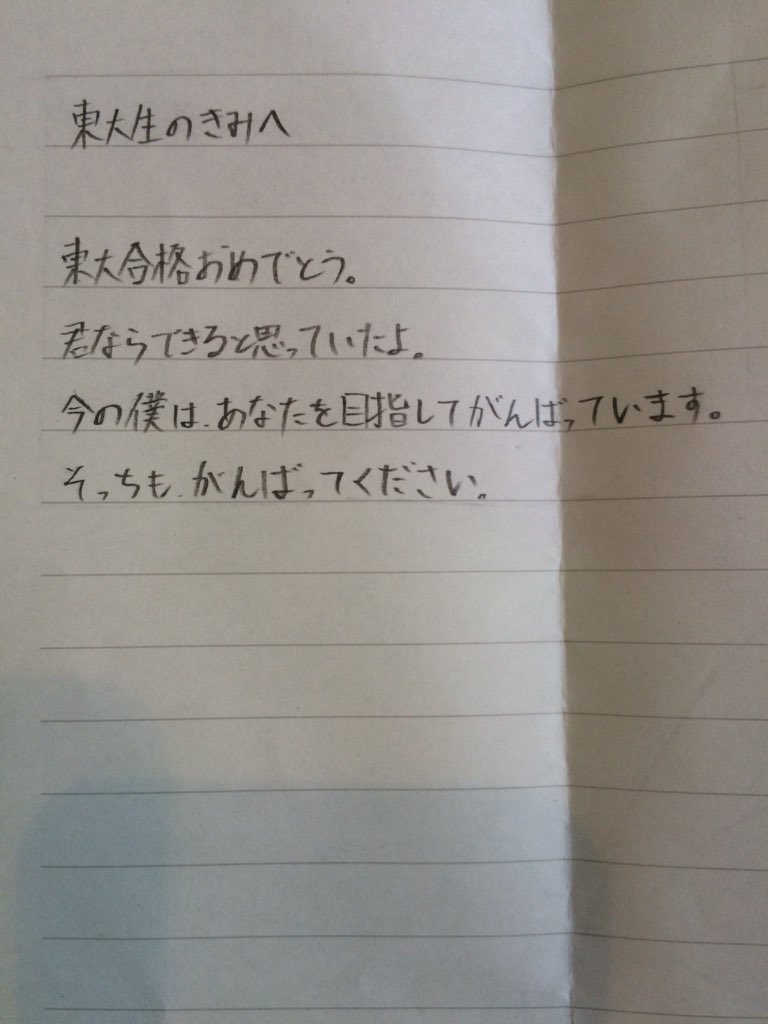 東大生のきみへ
東大合格おめでとう。
君ならできると思っていたよ。
今の僕は、あなたを目指してがんばっています。
そっちも、がんばってください。